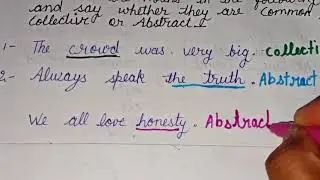 and say whether they are Common
collective or Abstract
1- The crowd was very big. collecti
2- Always speak the truth. Abstract
We all love honesty. Abstract